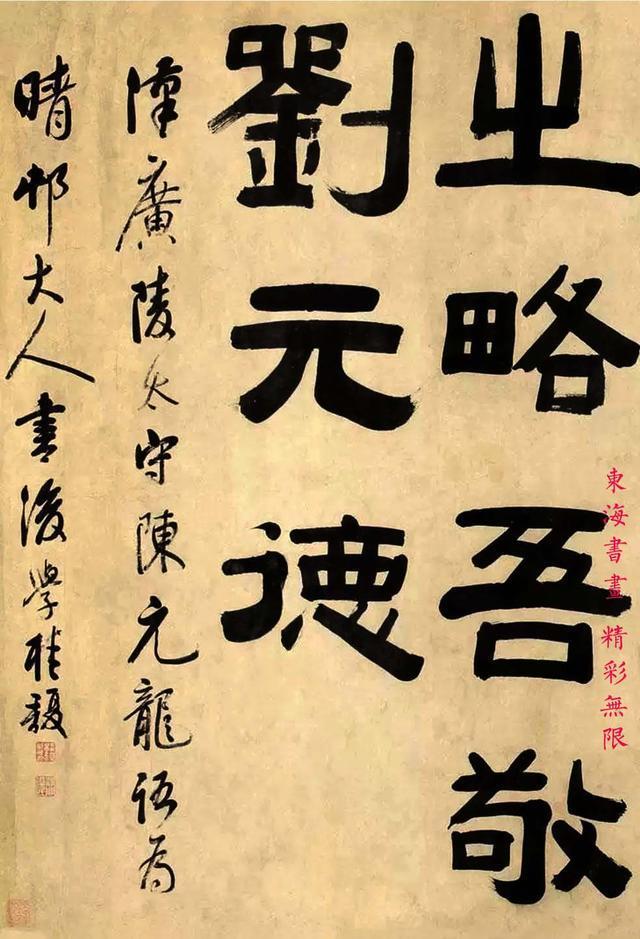 之略吾敬
劉元德
漢廣陵太守陳元龍語為
晴邨大人書後學桂馥
東海書畫 精彩無限